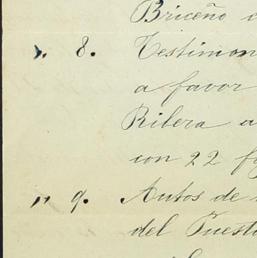 Briceño
" 8. Testimon
a favor
Ribera a
con 22 fo
" 9. Autos de
del Puesto